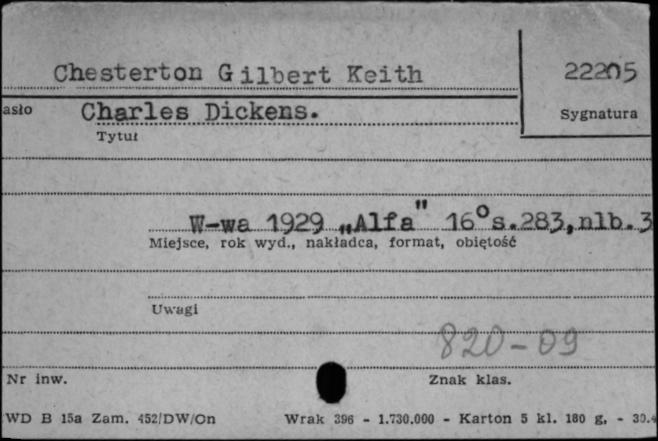 Chesterton Gilbert Keith
22205
asło
Charles Dickens.
Sygnatura
Tytuł
W-wa 1929 „Alfa" 16° s.283, nlb. 3
Miejsce, rok wyd., nakładca, format, obiętość
Uwagi
820-09
Nr inw.
Znak klas.
WD B 15a Zam. 452/DW/On Wrak 396 - 1.730.000 - Karton 5 kl. 180 g. - 30.4